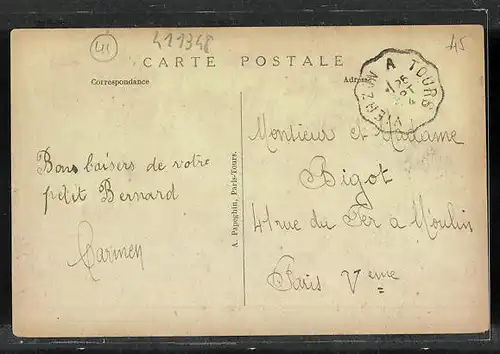 41
411348
45
CARTE POSTALE
Correspondance
VIERZON A TOURS
25
Bons baisers de votre
petit Bernard
Carmen
A. Papeghin, Paris-Tours.
Monsieur et Madame
Bigot
41 rue du Fer à Moulin
Paris Veme